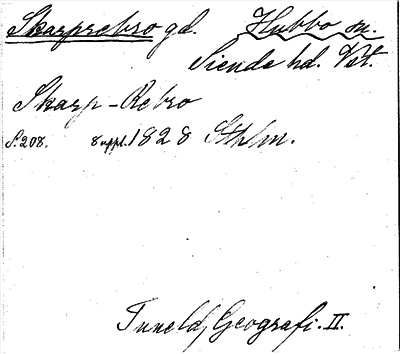 Skarprebro gd. Hubbo sn.
Siende hd. Vst.
Skarp-Rebro
S. 208. suppl. 1828 Sthlm.
Tuneld, Geografi. II.